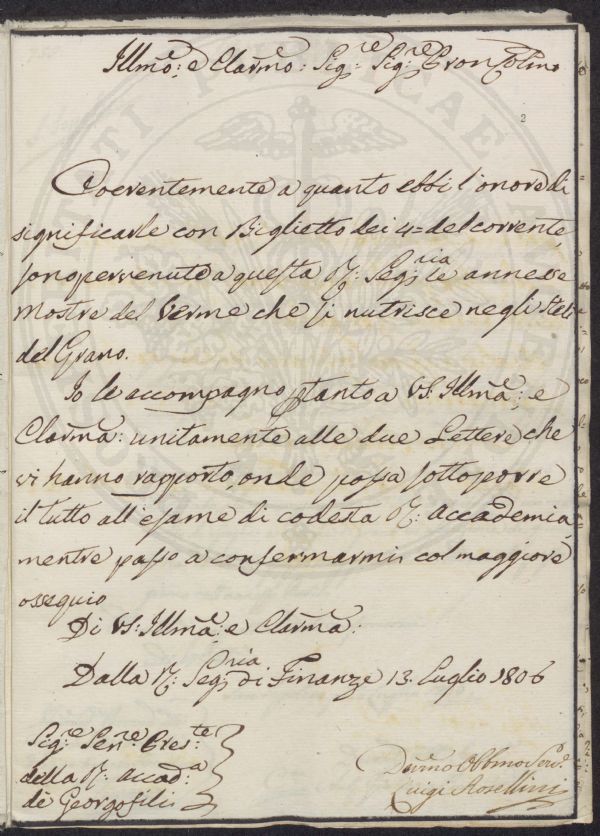 Illmo: e Clarmo: Sig:re Sig:re Pron Colmo
2
Coerentemente a quanto ebbi l'onore di
significarle con Biglietto dei 4= del corrente,
sono pervenute a questa R: Seg:ria le annesse
Mostre del Verme che si nutrisce negli Steli
del Grano.
Io le accompagno ptanto a VS: Illma: e
Clarma: unitamente alle due Lettere che
vi hanno rapporto, onde possa sottoporre
il tutto all'esame di codesta R: Accademia,
mentre passo a confermarmi col maggiore
ossequio
Di VS: Illma: e Clarma:
Dalla R: Seg:ria di Finanze 13. Luglio 1806
Sig:re Sen:re Pres:te
della R: Accad:a
de Georgofili
Devmo Obbmo Serv:
Luigi Rosellini